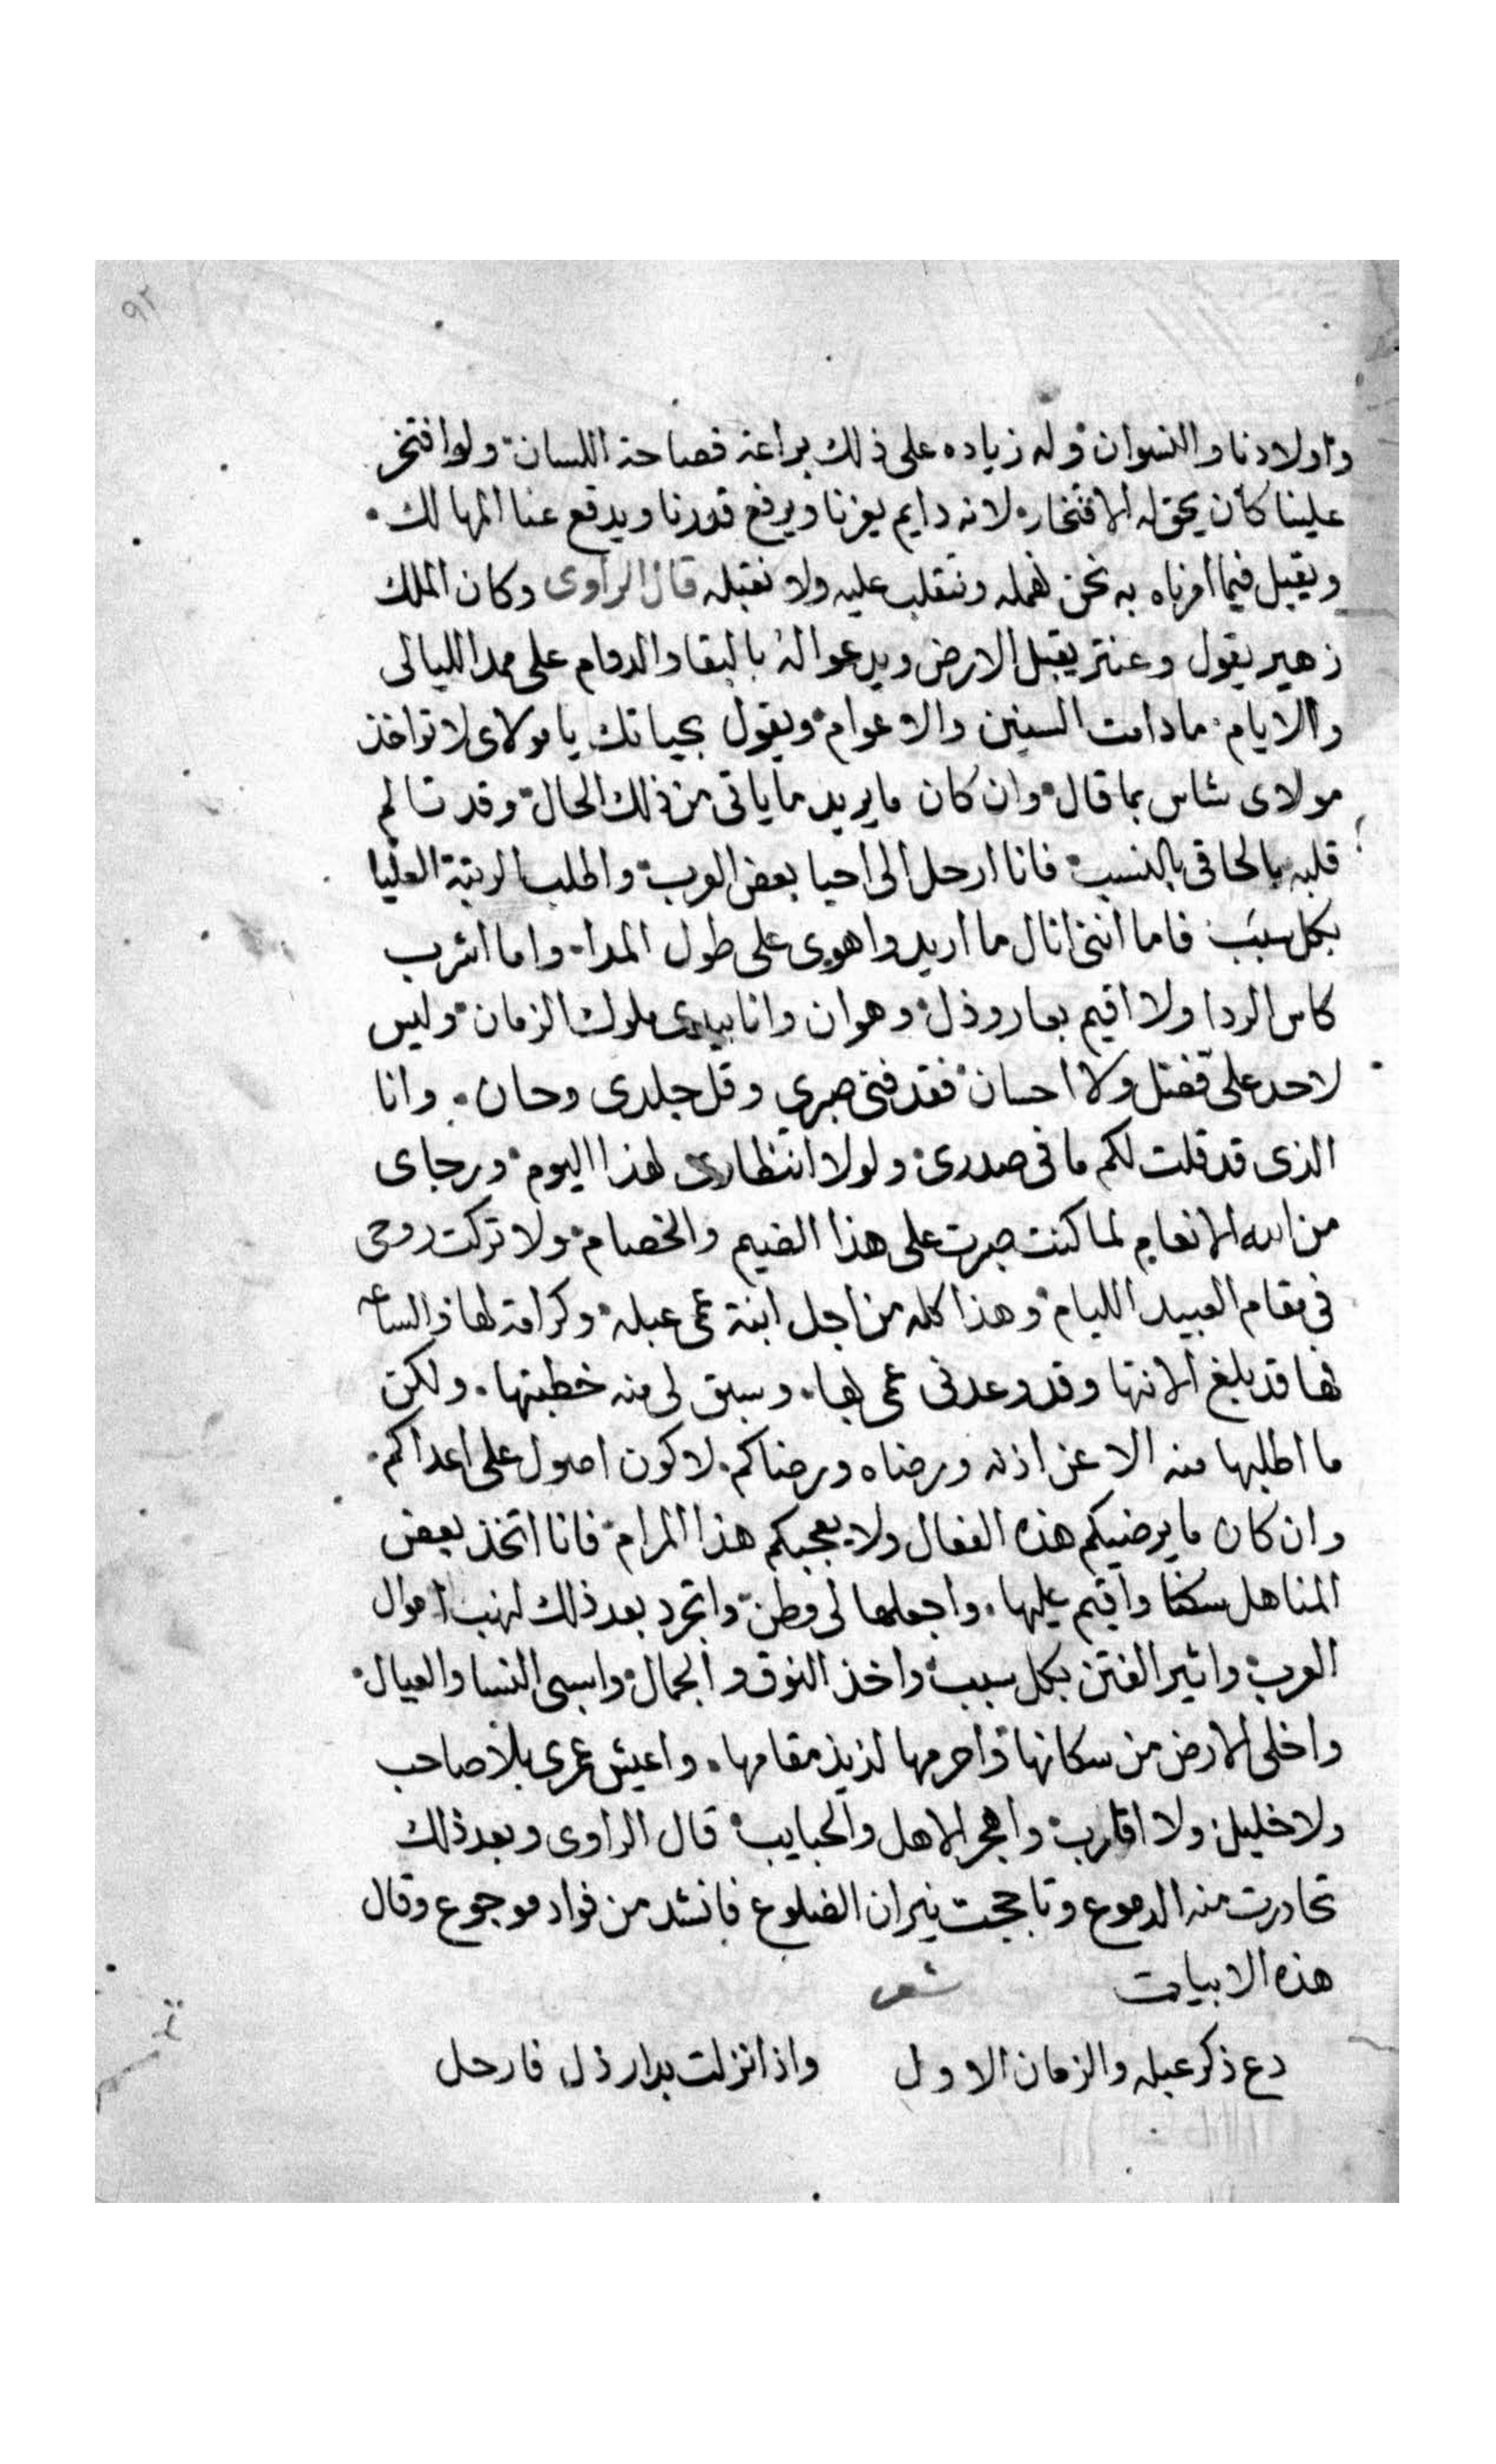 ٩٢
واولادنا والنسوان وله زياده على ذلك براعة فصاحة اللسان ولو افتخر
علينا كان يحق له الافتخار لانه دايم يعزنا ويرفع قدرنا ويدفع عنا المهالك
ويقبل فيما امرناه به نحن نهمله ونتقلب عليه ولا نقبله قال الراوى وكان الملك
زهير يقول وعنتر يقبل الارض ويدعوا له بالبقا والدوام على ممد الليالى
والايام ما دامت السنين والاعوام ويقول بحياتك يا مولاى لا تواخذ
مولاى شاس بما قال وان كان ما يريد ما ياتى من ذلك الحال وقد تالم
قلبه بالحاقى بالنسب فانا ارحل الى احيا بعض العرب واطلب الرتبة العليا
بكل سبب فاما اننى انال ما اريد واهوى على طول المدا واما اشرب
كاس الردا ولا اقيم بعار وذل وهوان وانا بيدى ملوك الزمان وليس
لاحد على فضل ولا احسان فقد فنى صبري وقل جلدى وحان وانا
الذى قد قلت لكم ما فى صدرى ولولا انتظارى لهذا اليوم ورجاى
من الله الانعام لما كنت صبرت على هذا الضيم والخصام ولا تركت روحى
فى مقام العبيد الليام وهذا كله من اجل ابنة عمى عبله وكرامة لها والساعه
فها قد بلغ الانتها وقد وعدنى عمى بها وسبق لى منه خطبتها ولكن
ما اطلبها منه الا عن اذنه ورضاه ورضاكم لاكون اصول على اعداكم
وان كان ما يرضيكم هذه الفعال ولا يعجبكم هذا المرام فانا اتخذ بعض
المناهل سكنا واقيم عليها واجعلها لى وطن واتجرد بعد ذلك لنهب اموال
العرب واثير الفتن بكل سبب واخذ النوق والجمال واسبى النسا والعيال
واخلى الارض من سكانها واحرمها لذيذ مقامها واعيش عمرى بلا صاحب
ولا خليل ولا اقارب واهجر الاهل والحبايب قال الراوى وبعد ذلك
تحادرت منه الدموع وتاججت نيران الضلوع فانشد من فواد موجوع وقال
هذه الابيات شعر
دع ذكر عبله والزمان الاول واذا نزلت بدار ذل فارحل